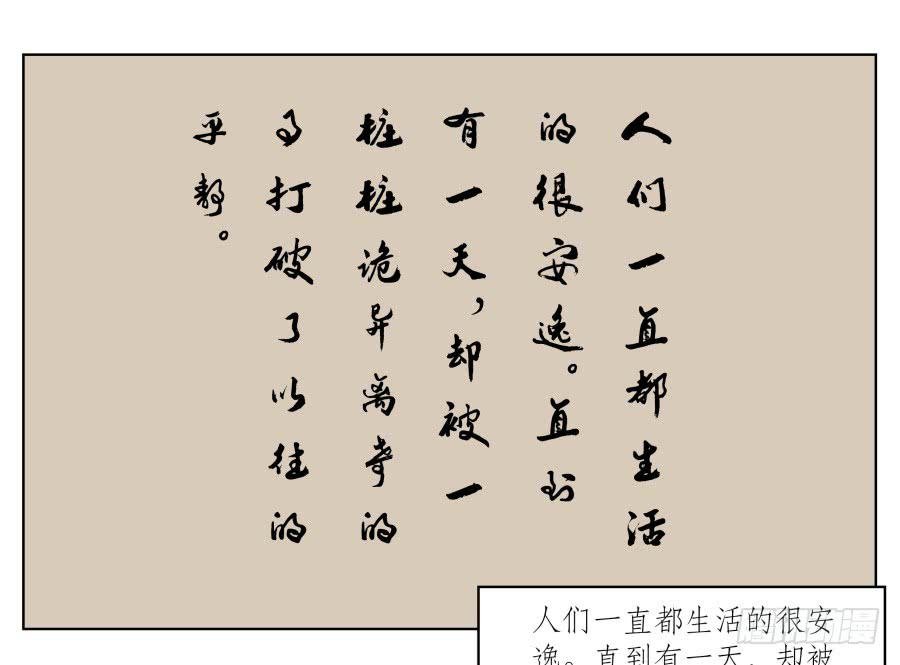 人们一直都生活
的很安逸。直到
有一天,却被一
桩桩诡异离奇的
事打破了以往的
平静。
人们一直都生活的很安
逸。直到有一天,却被